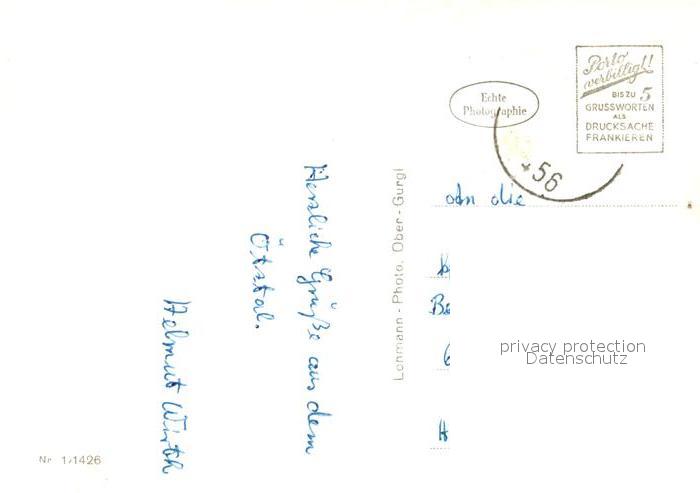 Herzliche Grüße aus dem
Ötztal.
Helmut Wirth
Nr. 1/1426
Lohmann - Photo, Ober - Gurgl
Echte
Photographie
Porto
verbilligt!
BIS ZU 5
GRUSSWORTEN
ALS
DRUCKSACHE
FRANKIEREN
56
An die
Be
privacy protection
Datenschutz